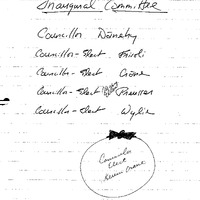 Inaugural Committee
Councillor Danehy
Councillor-Elect
Councillor-Elect Crane
Councillor-Elect
Councillor-Elect Wylie
Councillor
Elect
Crane